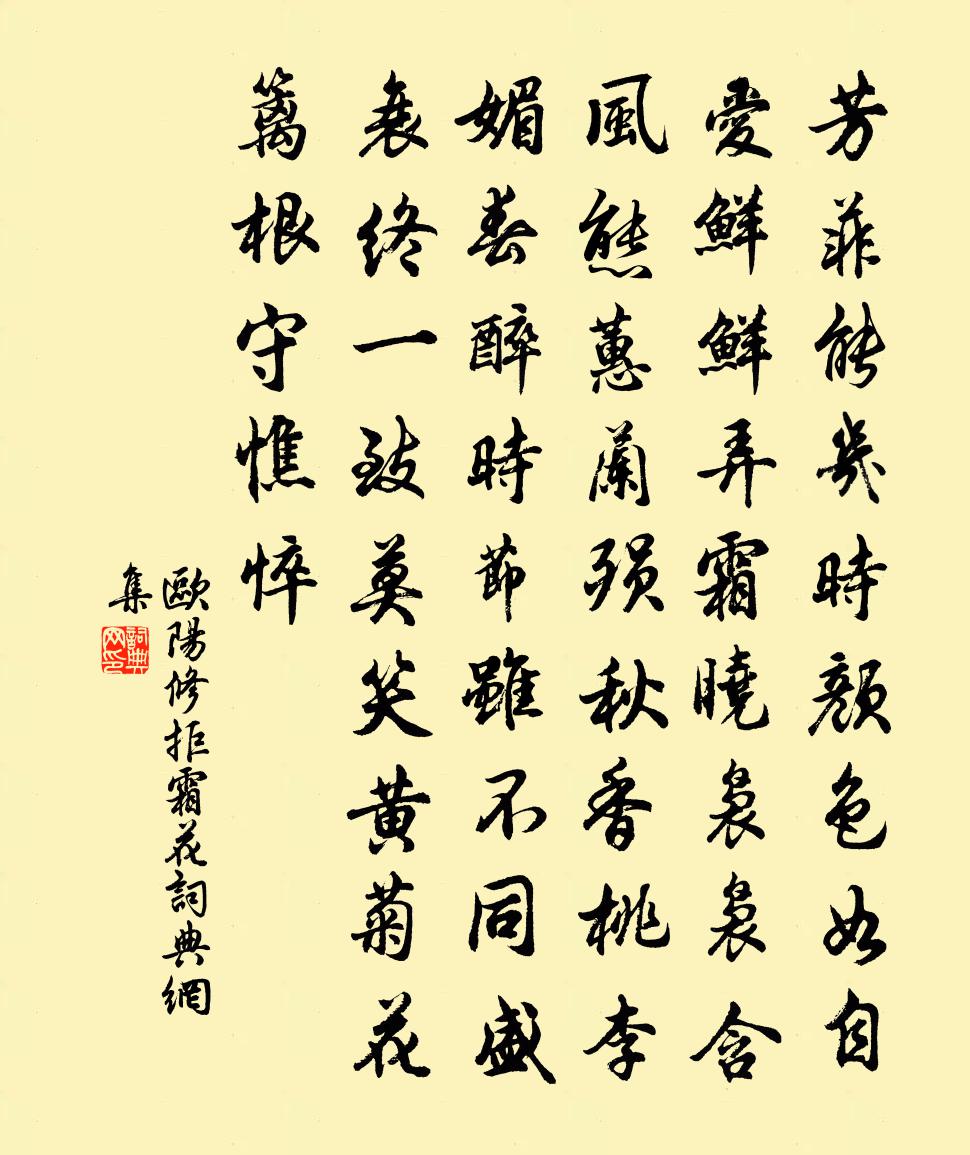 芳菲能幾時顔色如自
愛鮮鮮弄霜曉裊裊含
風態蕙蘭殞秋香桃李
媚春醉時節雖不同盛
衰終一致莫笑黄菊花
籬根守憔悴
歐陽修拒霜花詞典網
集
詞典網印